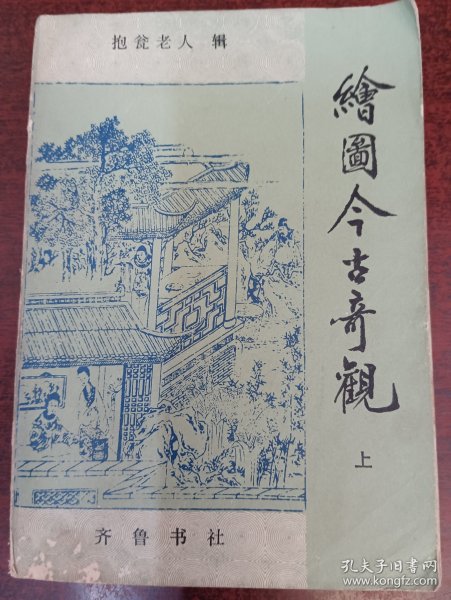 抱瓮老人 辑
繪圖今古奇觀
上
齐鲁书社
孔夫子旧书网
www.kongfz.com